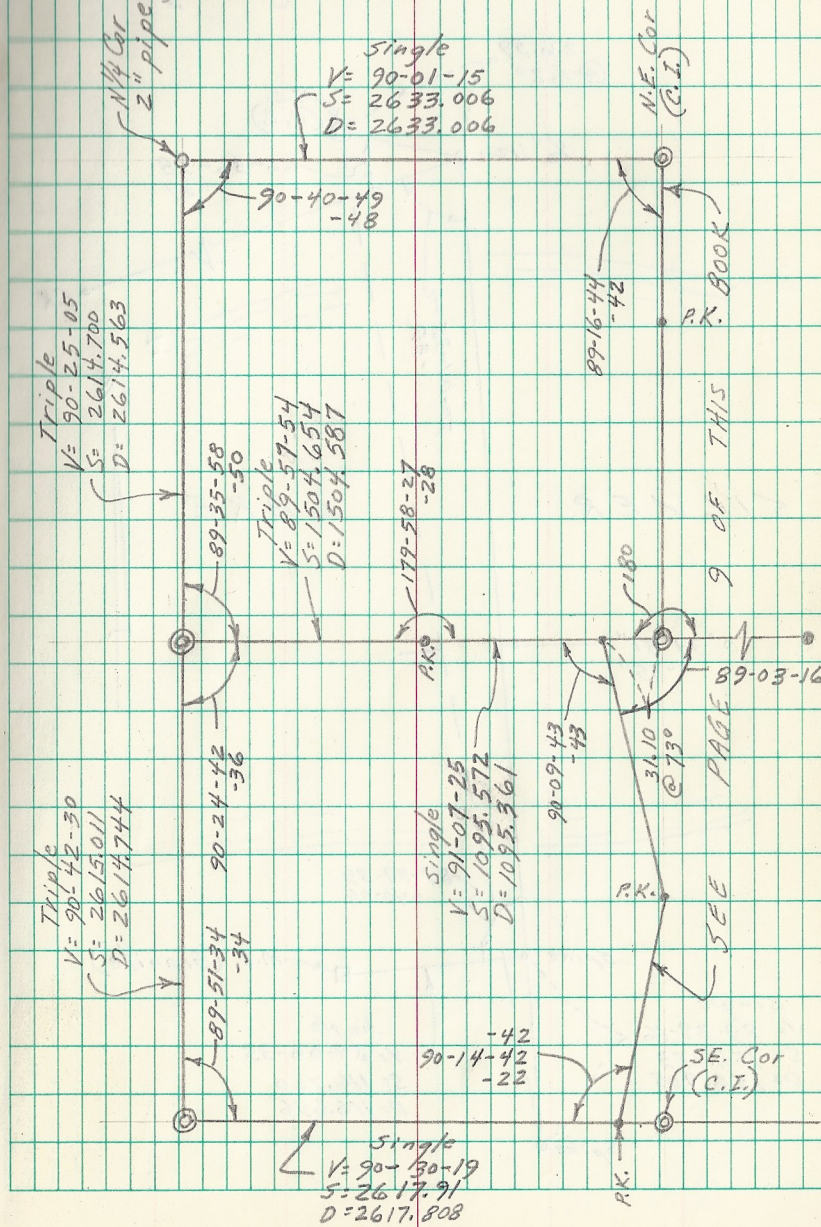 N¼ Cor
2" pipe
Single
V= 90-01-15
S= 2633.006
D= 2633.006
N.E. Cor
(C.I.)
90-40-49
-48
89-16-44
-42
P.K.
Triple
V= 90-25-05
S= 2614.700
D= 2614.563
89-35-58
-50
Triple
V= 89-59-54
S= 1504.654
D= 1504.587
179-58-27
-28
P.K.
180
89-03-16
31.10
@ 73°
90-09-43
-43
Single
V= 91-07-25
S= 1095.572
D= 1095.361
90-24-42
-36
Triple
V= 90-42-30
S= 2615.011
D= 2614.744
89-51-34
-34
P.K.
SEE PAGE 9 OF THIS BOOK
-42
90-14-42
-22
SE. Cor
(C.I.)
P.K.
Single
V= 90-30-19
S= 2617.91
D= 2617.808